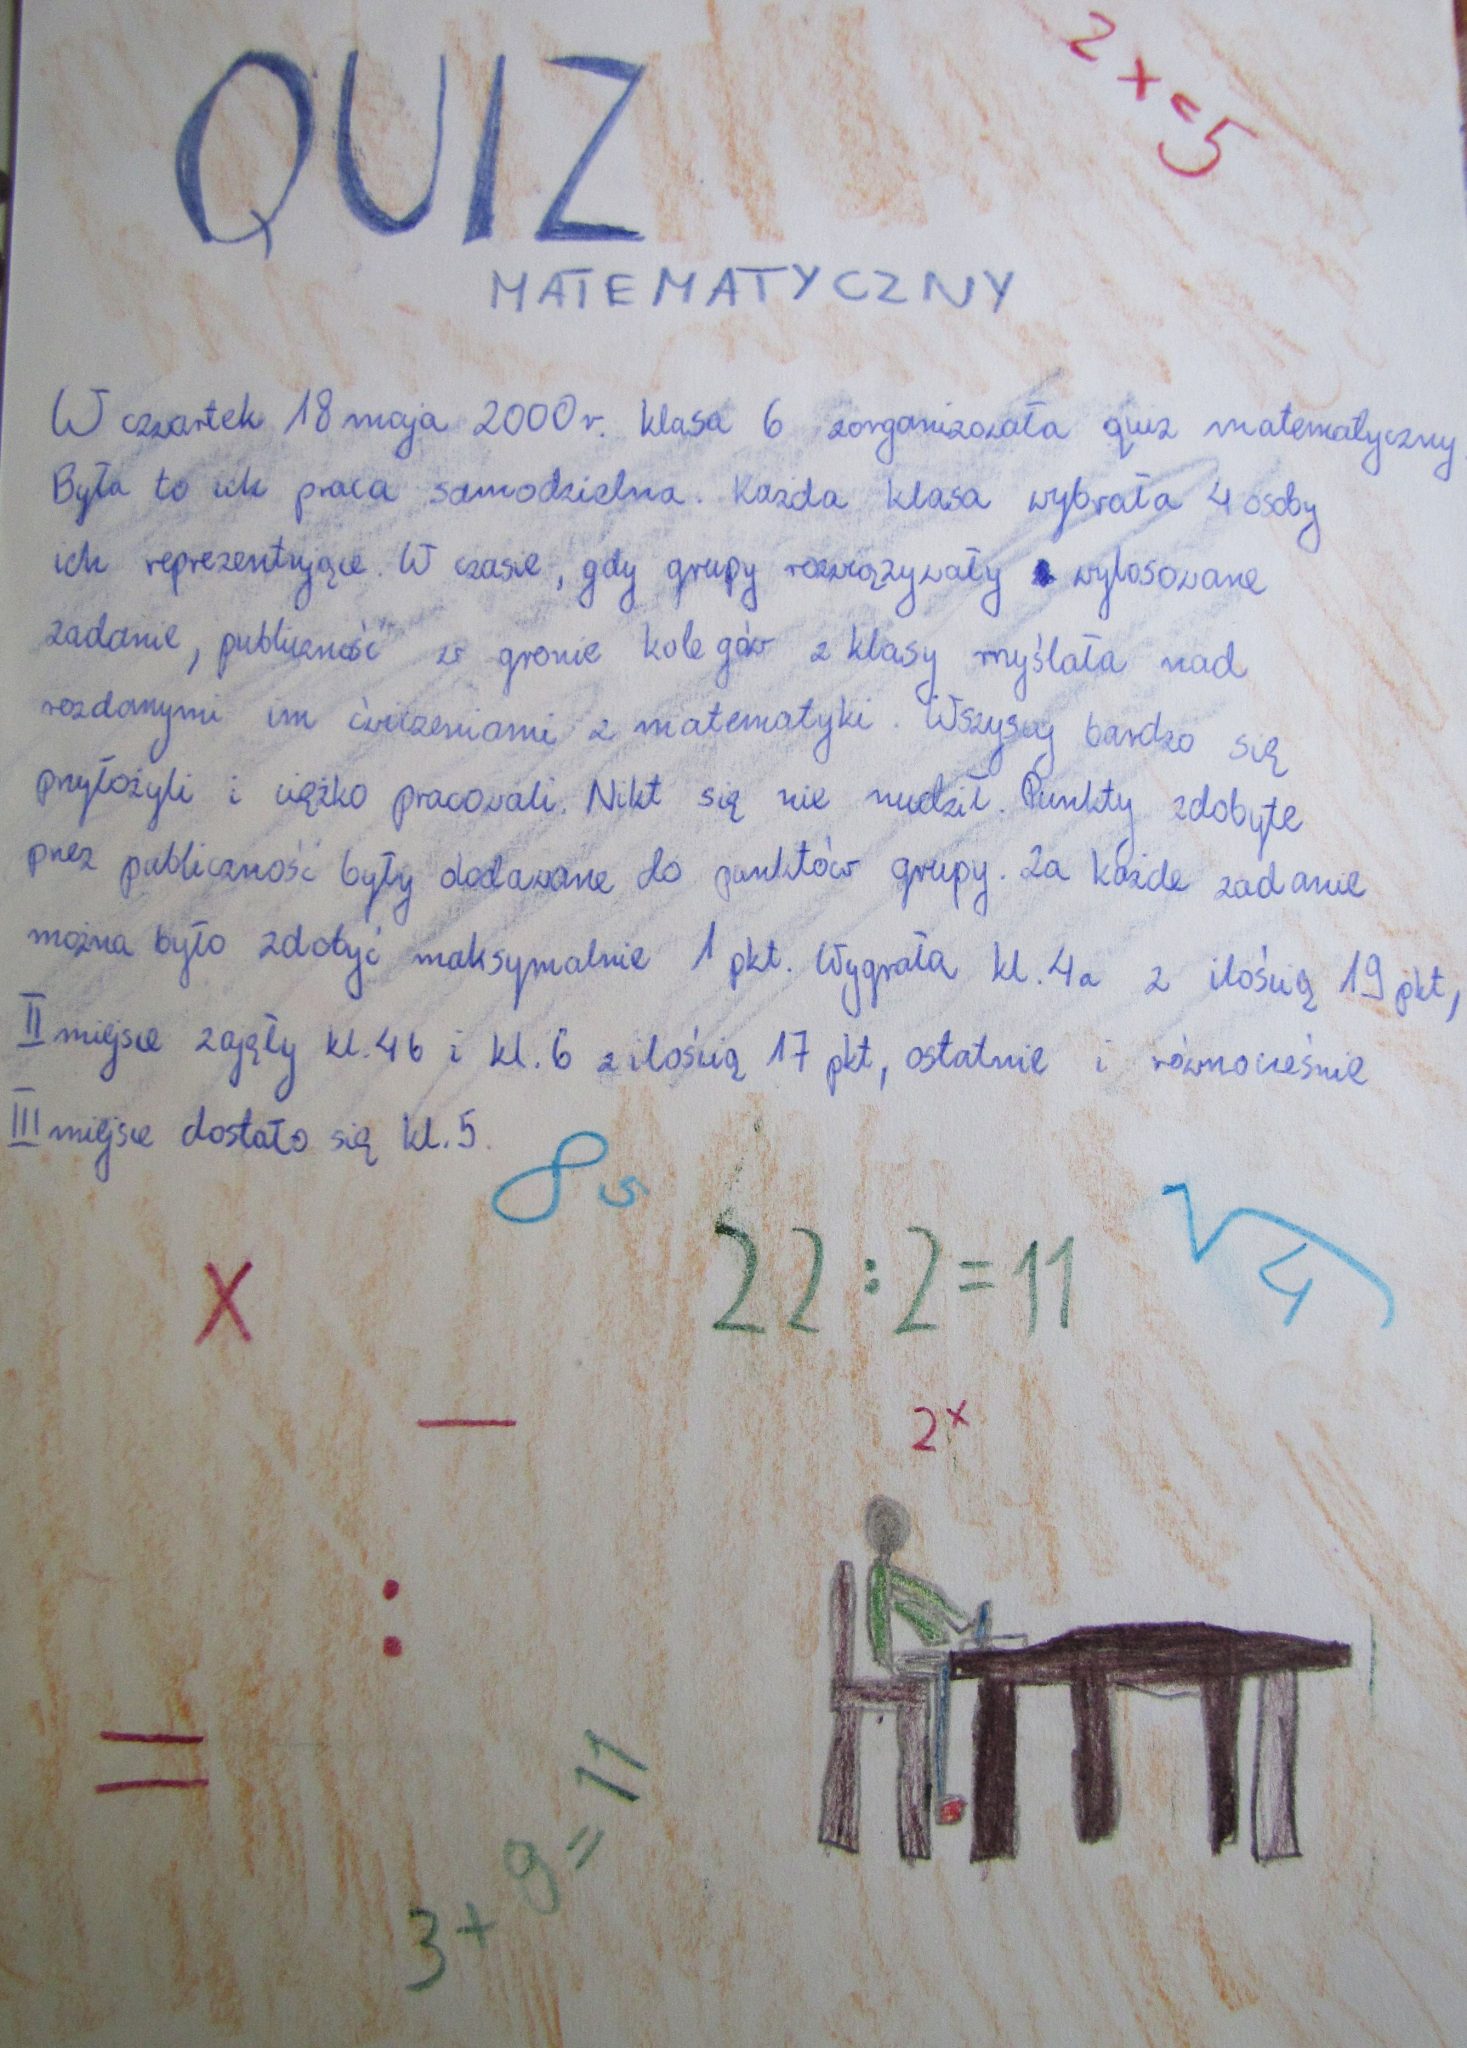 2x=5
QUIZ
MATEMATYCZNY
W czwartek 18 maja 2000r. klasa 6 zorganizowała quiz matematyczny.
Była to ich praca samodzielna. Każda klasa wybrała 4 osoby
ich reprezentujące. W czasie, gdy grupy rozwiązywały wylosowane
zadanie, publiczność w gronie kolegów z klasy myślała nad
rozdanymi im ćwiczeniami z matematyki. Wszyscy bardzo się
przyłożyli i ciężko pracowali. Nikt się nie nudził. Punkty zdobyte
przez publiczność były dodawane do punktów grupy. Za każde zadanie
można było zdobyć maksymalnie 1 pkt. Wygrała kl. 4a z ilością 19 pkt,
II miejsce zajęły kl. 4b i kl. 6 z ilością 17 pkt, ostatnie i równocześnie
III miejsce dostało się kl. 5.
8
22:2=11
√4
x
−
2ˣ
:
=
3+9=11